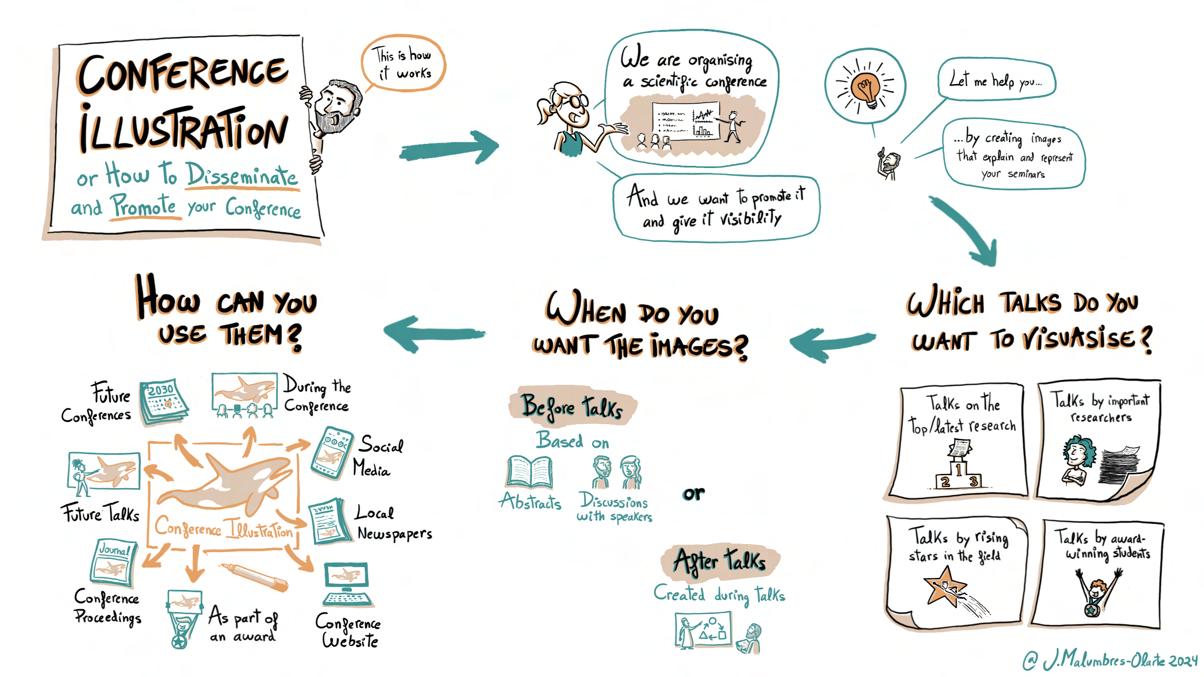 CONFERENCE
ILLUSTRATION
or How to Disseminate
and Promote your Conference
This is how
it works
We are organising
a scientific conference
And we want to promote it
and give it visibility
Let me help you...
...by creating images
that explain and represent
your seminars
WHICH TALKS DO YOU
WANT TO VISUASISE?
Talks on the
top/latest research
1
2 3
Talks by important
researchers
Talks by rising
stars in the field
Talks by award-
winning students
WHEN DO YOU
WANT THE IMAGES?
Before Talks
Based on
Abstracts
Discussions
with speakers
or
After Talks
Created during talks
HOW CAN YOU
USE THEM?
Future
Conferences
2030
During the
Conference
Social
Media
Local
Newspapers
Conference
Website
As part of
an award
Conference
Proceedings
Journal
Future Talks
Conference Illustration
@ J.Malumbres-Olarte 2024